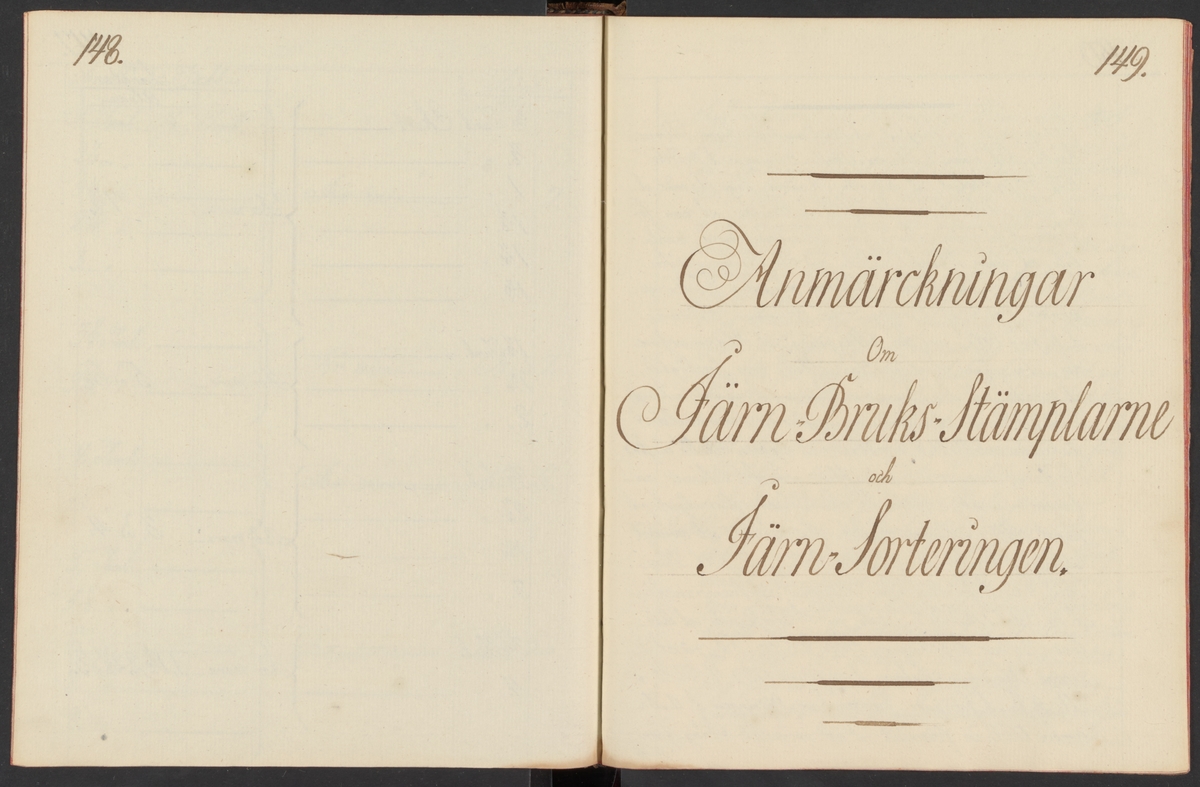 148.
149.
Anmärckningar
Om
Järn-Bruks-Stämplarne
och
Järn-Sorteringen.